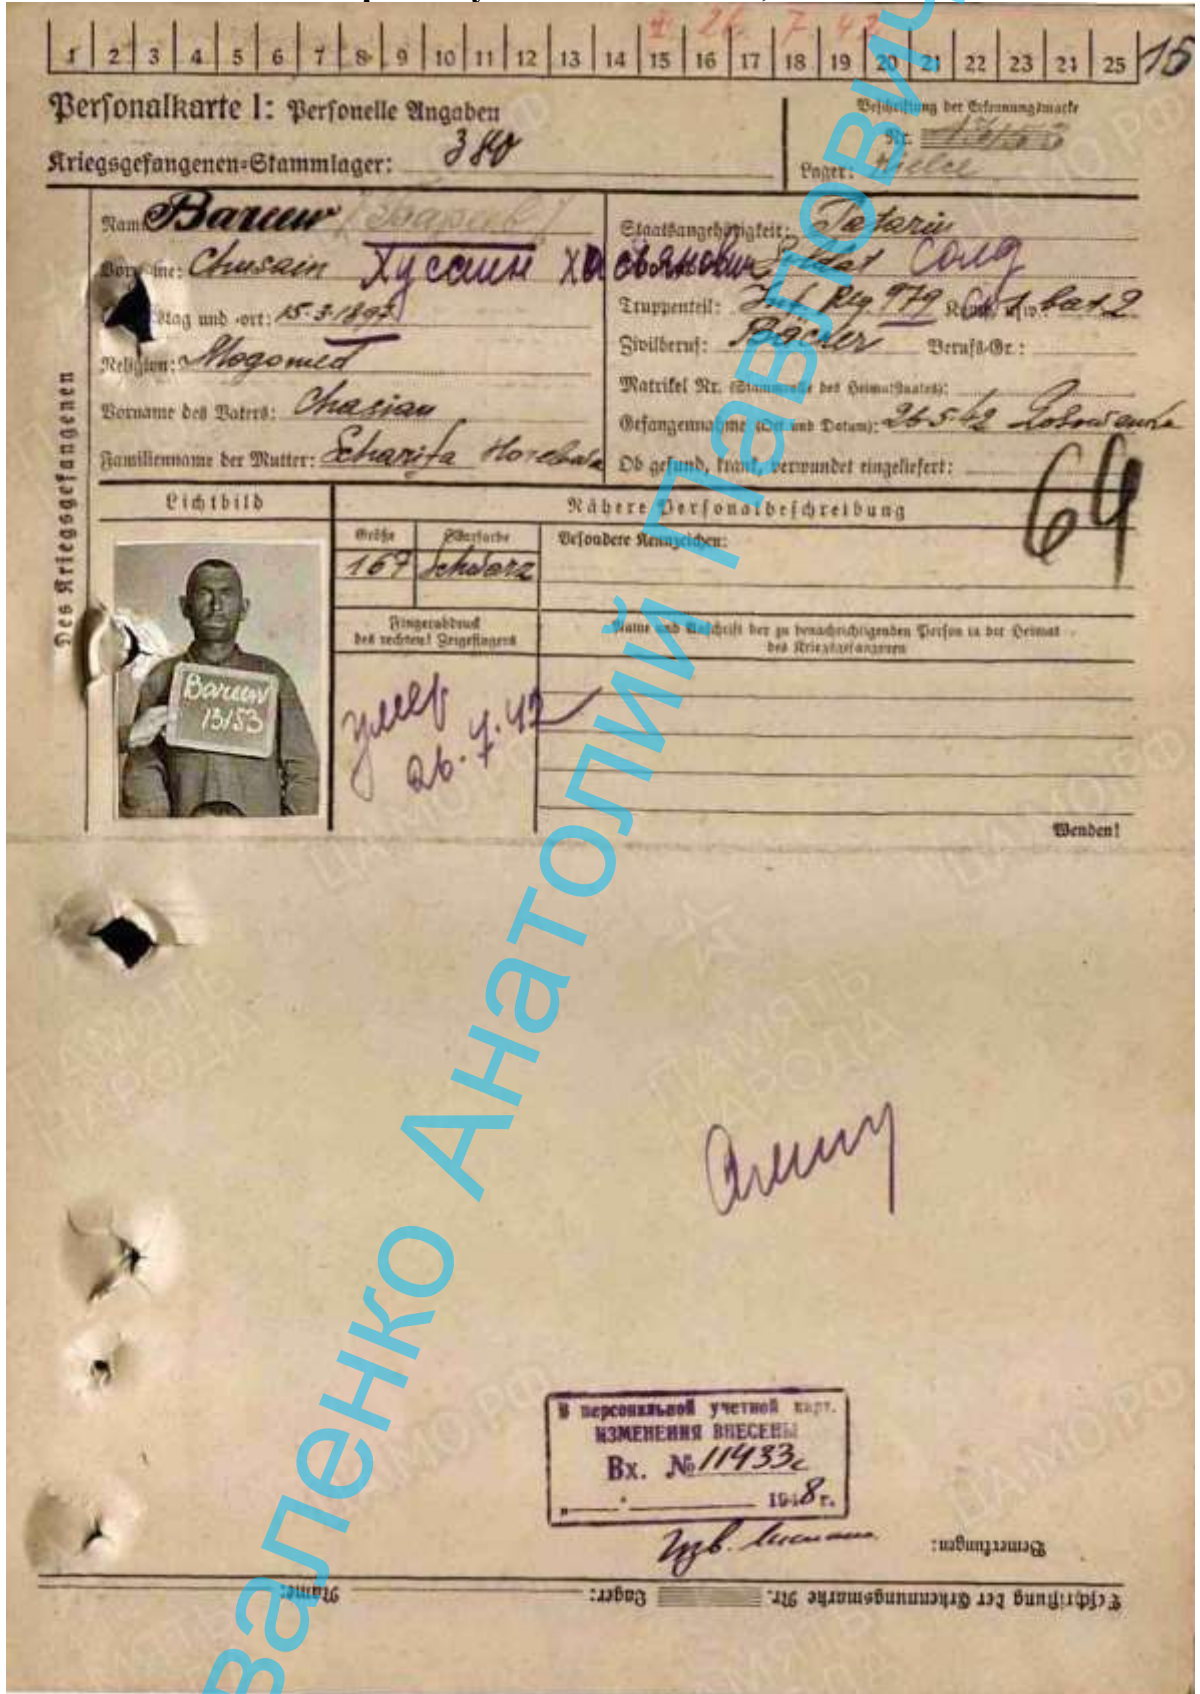 II 26. 7. 42
1 2 3 4 5 6 7 8 9 10 11 12 13 14 15 16 17 18 19 20 21 22 23 24 25 15
Personalkarte I: Personelle Angaben
Kriegsgefangenen-Stammlager: 380
Beschriftung der Erkennungsmarke
Nr. 13153
Lager: Kielce
Des Kriegsgefangenen
Name: Bareew /Бареев/
Vorname: Chusain Хусаин Хасьянович
tag und -ort: 15.3.1897
Religion: Mogomed
Vorname des Vaters: Chasian
Familienname der Mutter: Scharifa
Staatsangehörigkeit: Tatarin
Soldat Солд
Truppenteil: Inf. Reg. 979 Komp. usw.: 1. bat. 2
Zivilberuf: Bäcker Berufs-Gr.:
Matrikel Nr. (Stammrolle des Heimatstaates):
Gefangennahme (Ort und Datum): 26.5.42
Ob gesund, krank, verwundet eingeliefert:
64
Lichtbild
Nähere Personalbeschreibung
Größe Haarfarbe Besondere Kennzeichen:
167 Schwarz
Fingerabdruck
des rechten! Zeigefingers
Name und Anschrift der zu benachrichtigenden Person in der Heimat
des Kriegsgefangenen
Bareew
13153
умер
26.7.42
Wenden!
В персональной учетной карт.
ИЗМЕНЕНИЯ ВНЕСЕНЫ
Вх. № 11433с
„ “ 1948 г.
Bemerkungen:
Beschriftung der Erkennungsmarke Nr. Lager: Name:
валенко Анатолий Павлович
ПАМЯТЬ
НАРОДА
ЦАМО.РФ